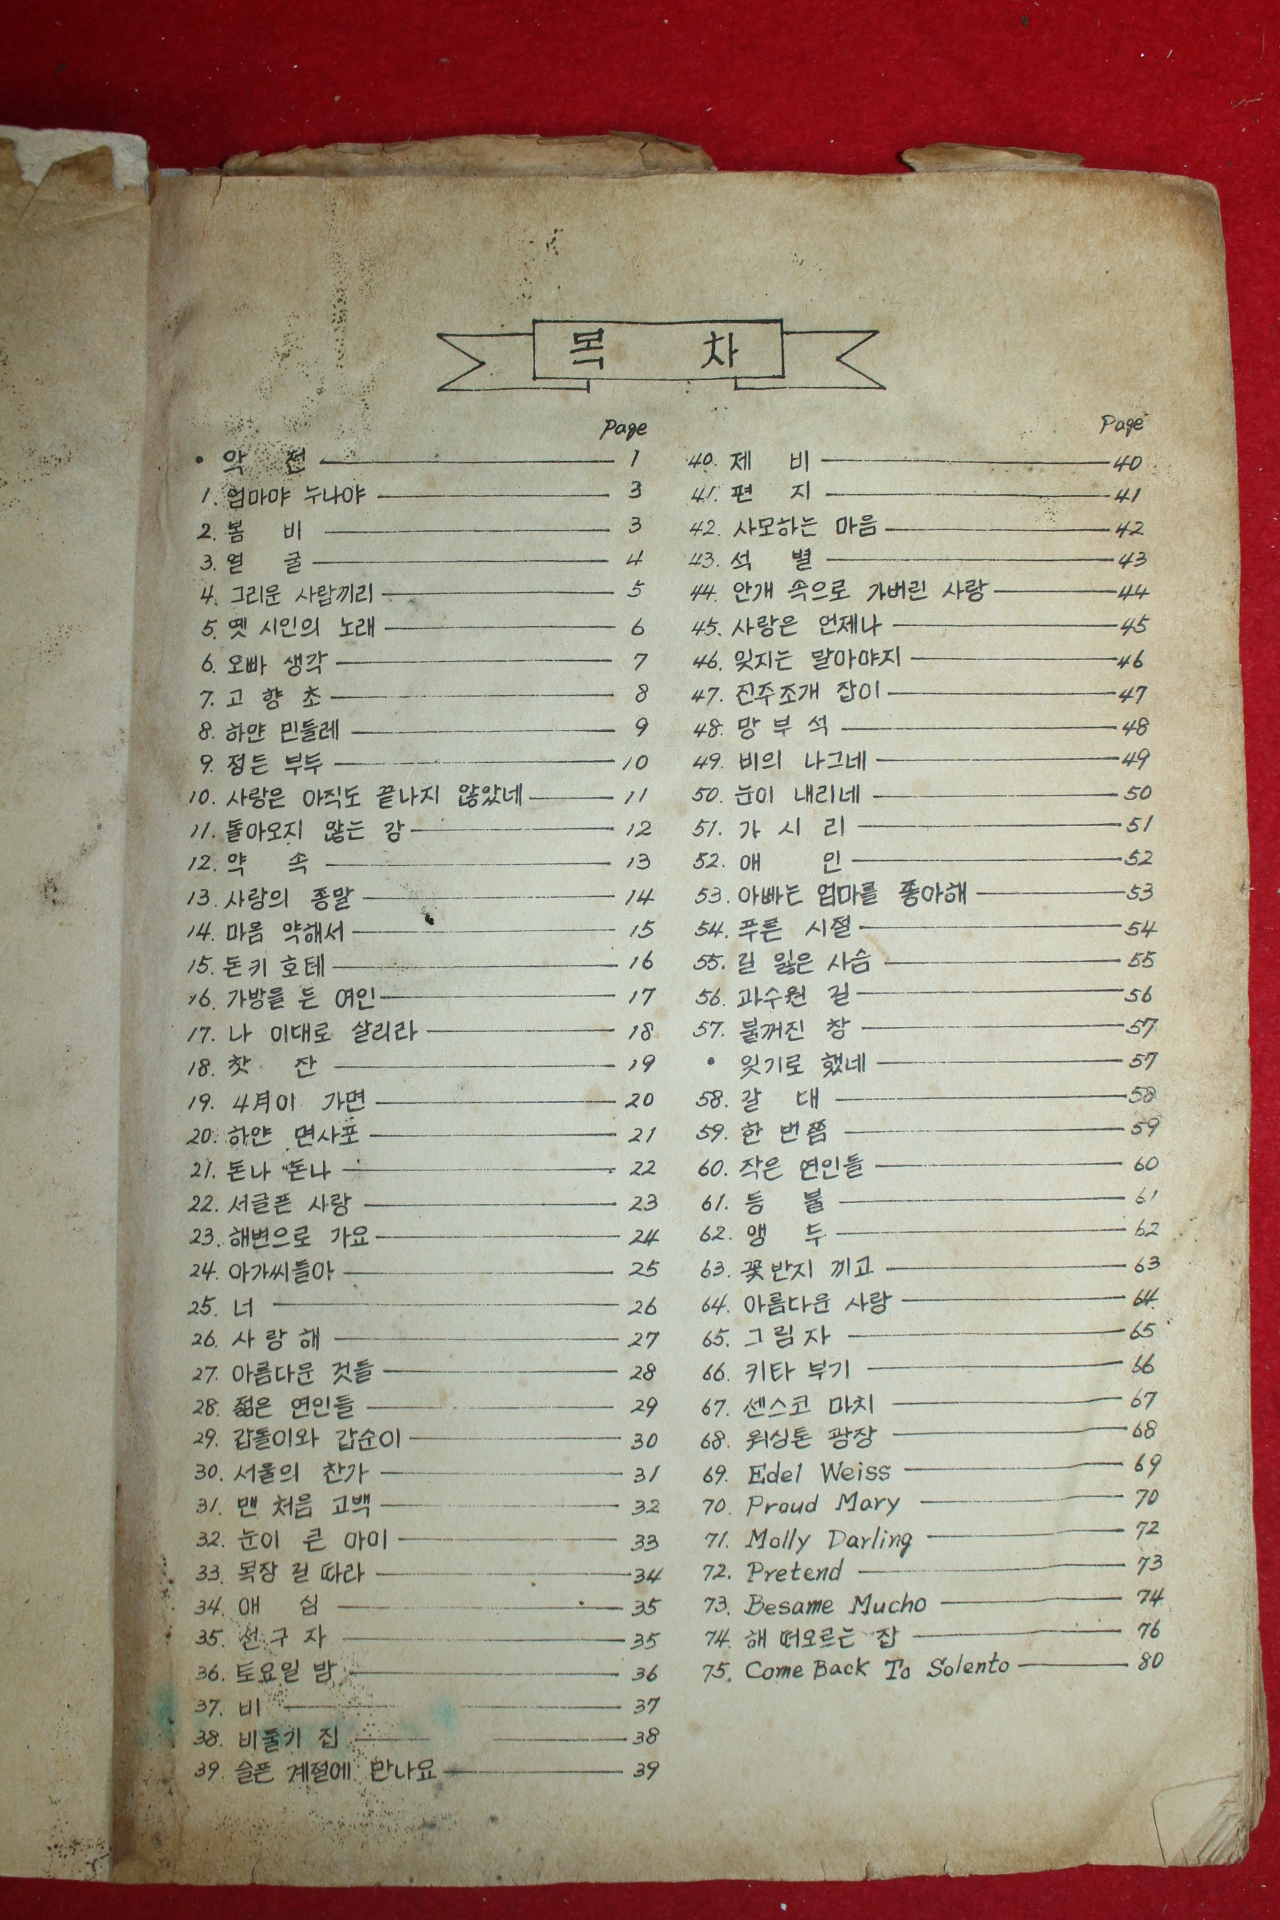 목 차
Page
• 악 전 1
1. 엄마야 누나야 3
2. 봄 비 3
3. 얼 굴 4
4. 그리운 사람끼리 5
5. 옛 시인의 노래 6
6. 오빠 생각 7
7. 고 향 초 8
8. 하얀 민들레 9
9. 정든 부두 10
10. 사랑은 아직도 끝나지 않았네 11
11. 돌아오지 않는 강 12
12. 약 속 13
13. 사랑의 종말 14
14. 마음 약해서 15
15. 돈키 호테 16
16. 가방을 든 여인 17
17. 나 이대로 살리라 18
18. 찻 잔 19
19. 4月이 가면 20
20. 하얀 면사포 21
21. 돈나 돈나 22
22. 서글픈 사랑 23
23. 해변으로 가요 24
24. 아가씨들아 25
25. 너 26
26. 사 랑 해 27
27. 아름다운 것들 28
28. 젊은 연인들 29
29. 갑돌이와 갑순이 30
30. 서울의 찬가 31
31. 맨 처음 고백 32
32. 눈이 큰 아이 33
33. 목장 길 따라 34
34. 애 심 35
35. 선 구 자 35
36. 토요일 밤 36
37. 비 37
38. 비둘기 집 38
39. 슬픈 계절에 만나요 39
Page
40. 제 비 40
41. 편 지 41
42. 사모하는 마음 42
43. 석 별 43
44. 안개 속으로 가버린 사랑 44
45. 사랑은 언제나 45
46. 잊지는 말아야지 46
47. 진주조개 잡이 47
48. 망 부 석 48
49. 비의 나그네 49
50. 눈이 내리네 50
51. 가 시 리 51
52. 애 인 52
53. 아빠는 엄마를 좋아해 53
54. 푸른 시절 54
55. 길 잃은 사슴 55
56. 과수원 길 56
57. 불꺼진 창 57
• 잊기로 했네 57
58. 갈 대 58
59. 한 번쯤 59
60. 작은 연인들 60
61. 등 불 61
62. 앵 두 62
63. 꽃반지 끼고 63
64. 아름다운 사람 64
65. 그 림 자 65
66. 키타 부기 66
67. 센스코 마치 67
68. 워싱톤 광장 68
69. Edel Weiss 69
70. Proud Mary 70
71. Molly Darling 72
72. Pretend 73
73. Besame Mucho 74
74. 해 떠오르는 집 76
75. Come Back To Solento 80